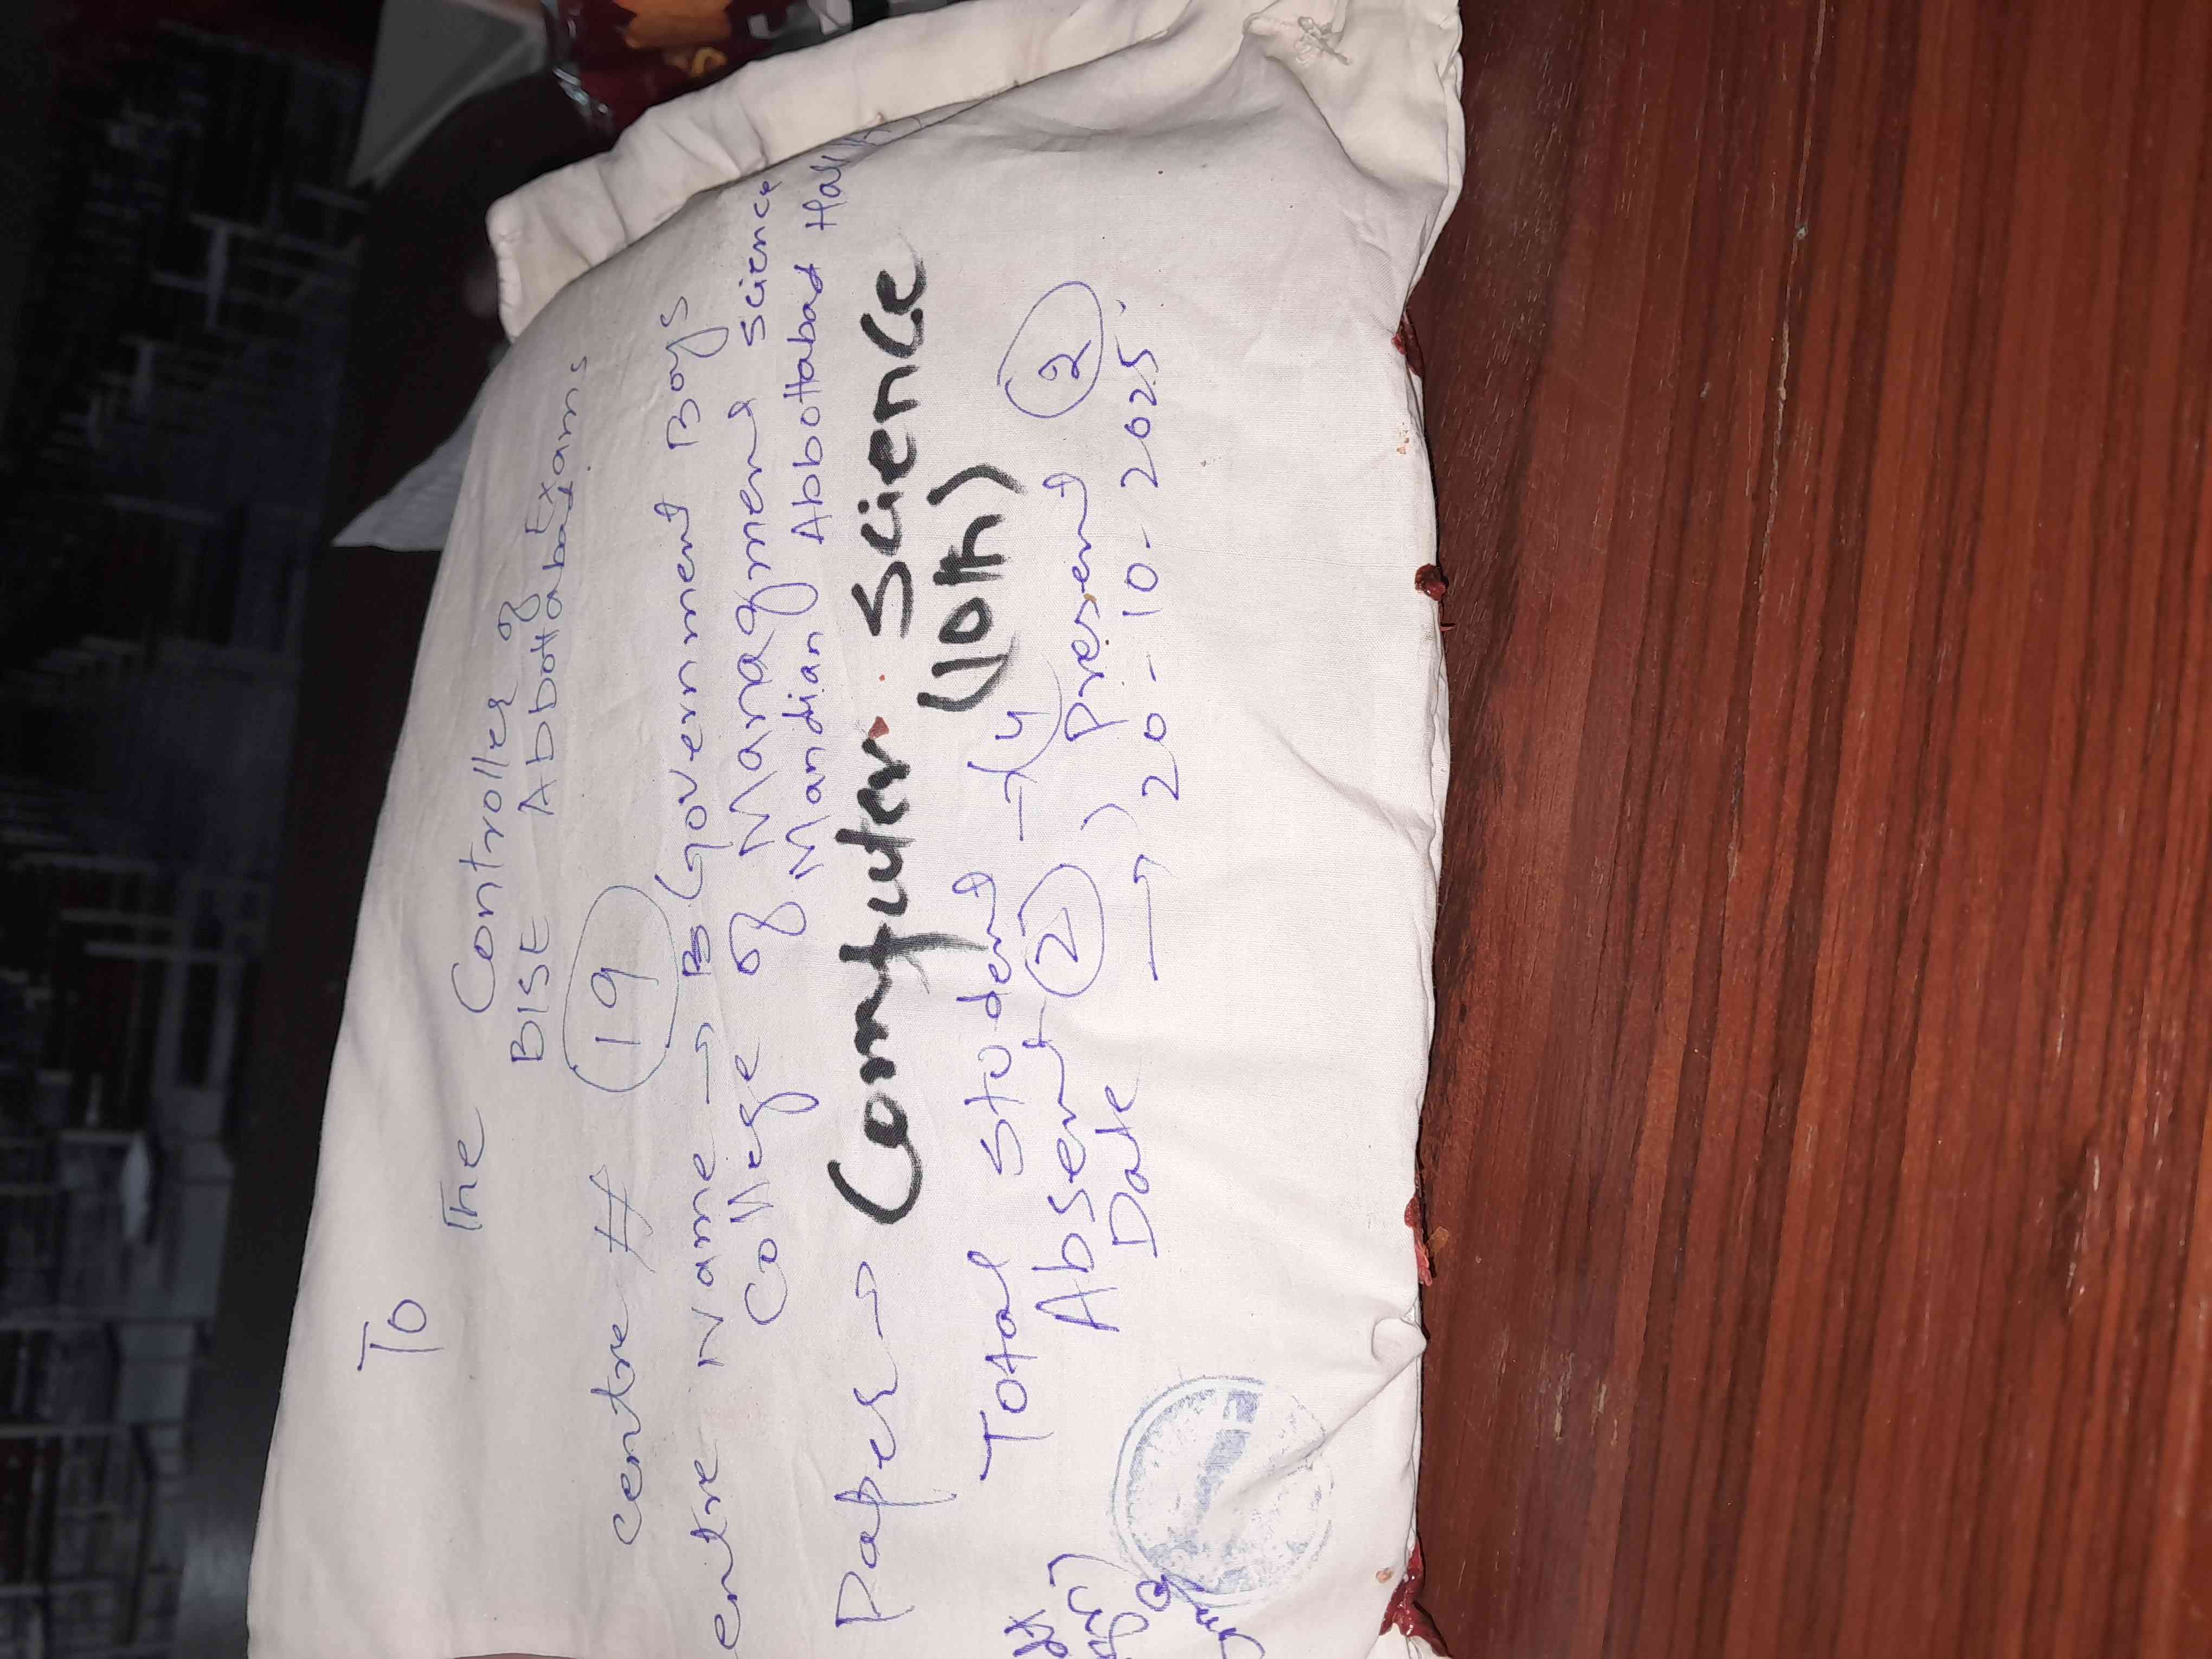 To
The Controller of Exams
BISE Abbottabad
Centre # 19
entre Name → B Government Boys
College of Managment Science
Mandian Abbottabad Hall
Paper → Computer Science
(10th)
Total Student → 4
Absent → 2, Present 2
Date → 20-10-2025.